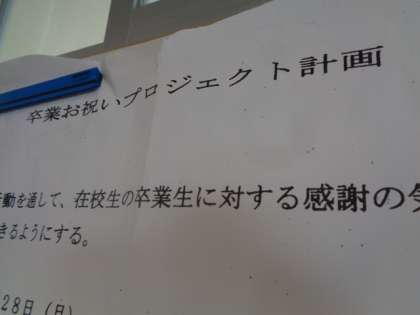 卒業お祝いプロジェクト計画
動を通して、在校生の卒業生に対する感謝の
きるようにする。
28日(日)